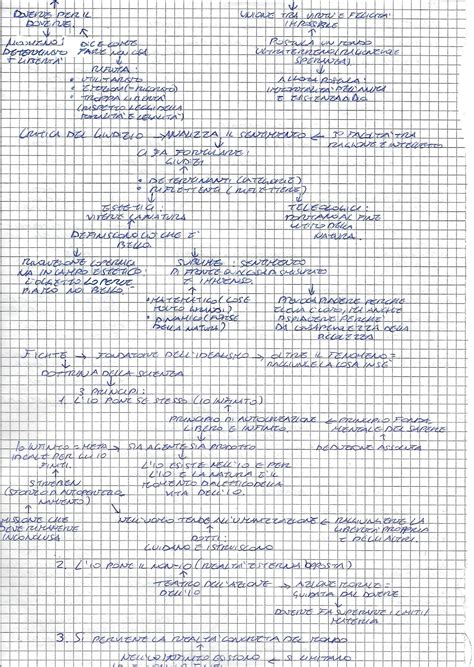 DOVERE PER IL
DOVERE.
UNIONE TRA VIRTÙ E FELICITÀ
IMPOSSIBILE
NOUMENO:
DETERMINATO
E LIBERTÀ
DICE COME
FARE NON COSA
POSTULA UN MONDO
ULTRATERRENO (RAGIONEVOLE
SPERANZA)
RIFIUTA:
• UTILITARISMO
• EMOZIONI
(RISPETTO LEGGI DELLA
MORALITÀ E LEGALITÀ)
ALLORA POSTULA:
IMMORTALITÀ DELL'ANIMA
E ESISTENZA DIO
CRITICA DEL GIUDIZIO → ANALIZZA IL SENTIMENTO ← 3ª FACOLTÀ TRA
RAGIONE E INTELLETTO
CI FA FORMULARE
GIUDIZI
• DETERMINANTI (CATEGORIE)
• RIFLETTENTI (RIFLETTERE)
ESTETICI:
VIVERE LA NATURA
TELEOLOGICI:
FINE
ULTIMO DELLA
NATURA.
DEFINISCONO CIÒ CHE È
BELLO.
RIVOLUZIONE COPERNICANA
MA IN CAMPO ESTETICO:
SUBLIME: SENTIMENTO
DI FRONTE QUALCOSA DI SMISURATO
E IMMENSO.
• MATEMATICO (COSE
MOLTO GRANDI)
• DINAMICO (FORZE
DELLA NATURA)
PROVOCA PIACERE PERCHÉ
ELEVA L'UOMO, MA ANCHE
DISPIACERE PERCHÉ
DÀ CONSAPEVOLEZZA DELLA
PICCOLEZZA
FICHTE → FONDATORE DELL'IDEALISMO → OLTRE IL FENOMENO =
RAGGIUNGE LA COSA IN SÉ
DOTTRINA DELLA SCIENZA
3 PRINCIPI:
1. L'IO PONE SE STESSO (IO INFINITO)
PRINCIPIO DI AUTOCREAZIONE
LIBERO E INFINITO.
← PRINCIPIO FONDA-
MENTALE DEL SAPERE
IO INFINITO = META
IDEALE PER GLI IO
FINITI.
→ SIA AGENTE SIA PRODOTTO
DEDUZIONE ASSOLUTA
L'IO ESISTE NELL'IO E PER
L'IO E LA NATURA È IL
MOMENTO DIALETTICO DELLA
VITA DELL'IO.
STREBEN
(SFORZO DI AUTOPERFEZIO-
NAMENTO)
MISSIONE CHE
INCONCLUSA
NELL'UOMO TENDE ALL'UMANIZZAZIONE ← RAGGIUNGERE LA
LIBERTÀ PROPRIA
E DEGLI ALTRI.
DOTTI:
GUIDANO E ISTRUISCONO
2. L'IO PONE IL NON-IO (REALTÀ ESTERNA OPPOSTA)
TEATRO DELL'AZIONE
DELL'IO
→ AZIONE MORALE =
GUIDATA DAL DOVERE
DOVERE FA SUPERARE I LIMITI
MATERIA
3. SI PERVIENE LA REALTÀ CONCRETA DEL MONDO
NELL'IO INFINITO ESISTONO ← SI LIMITANO